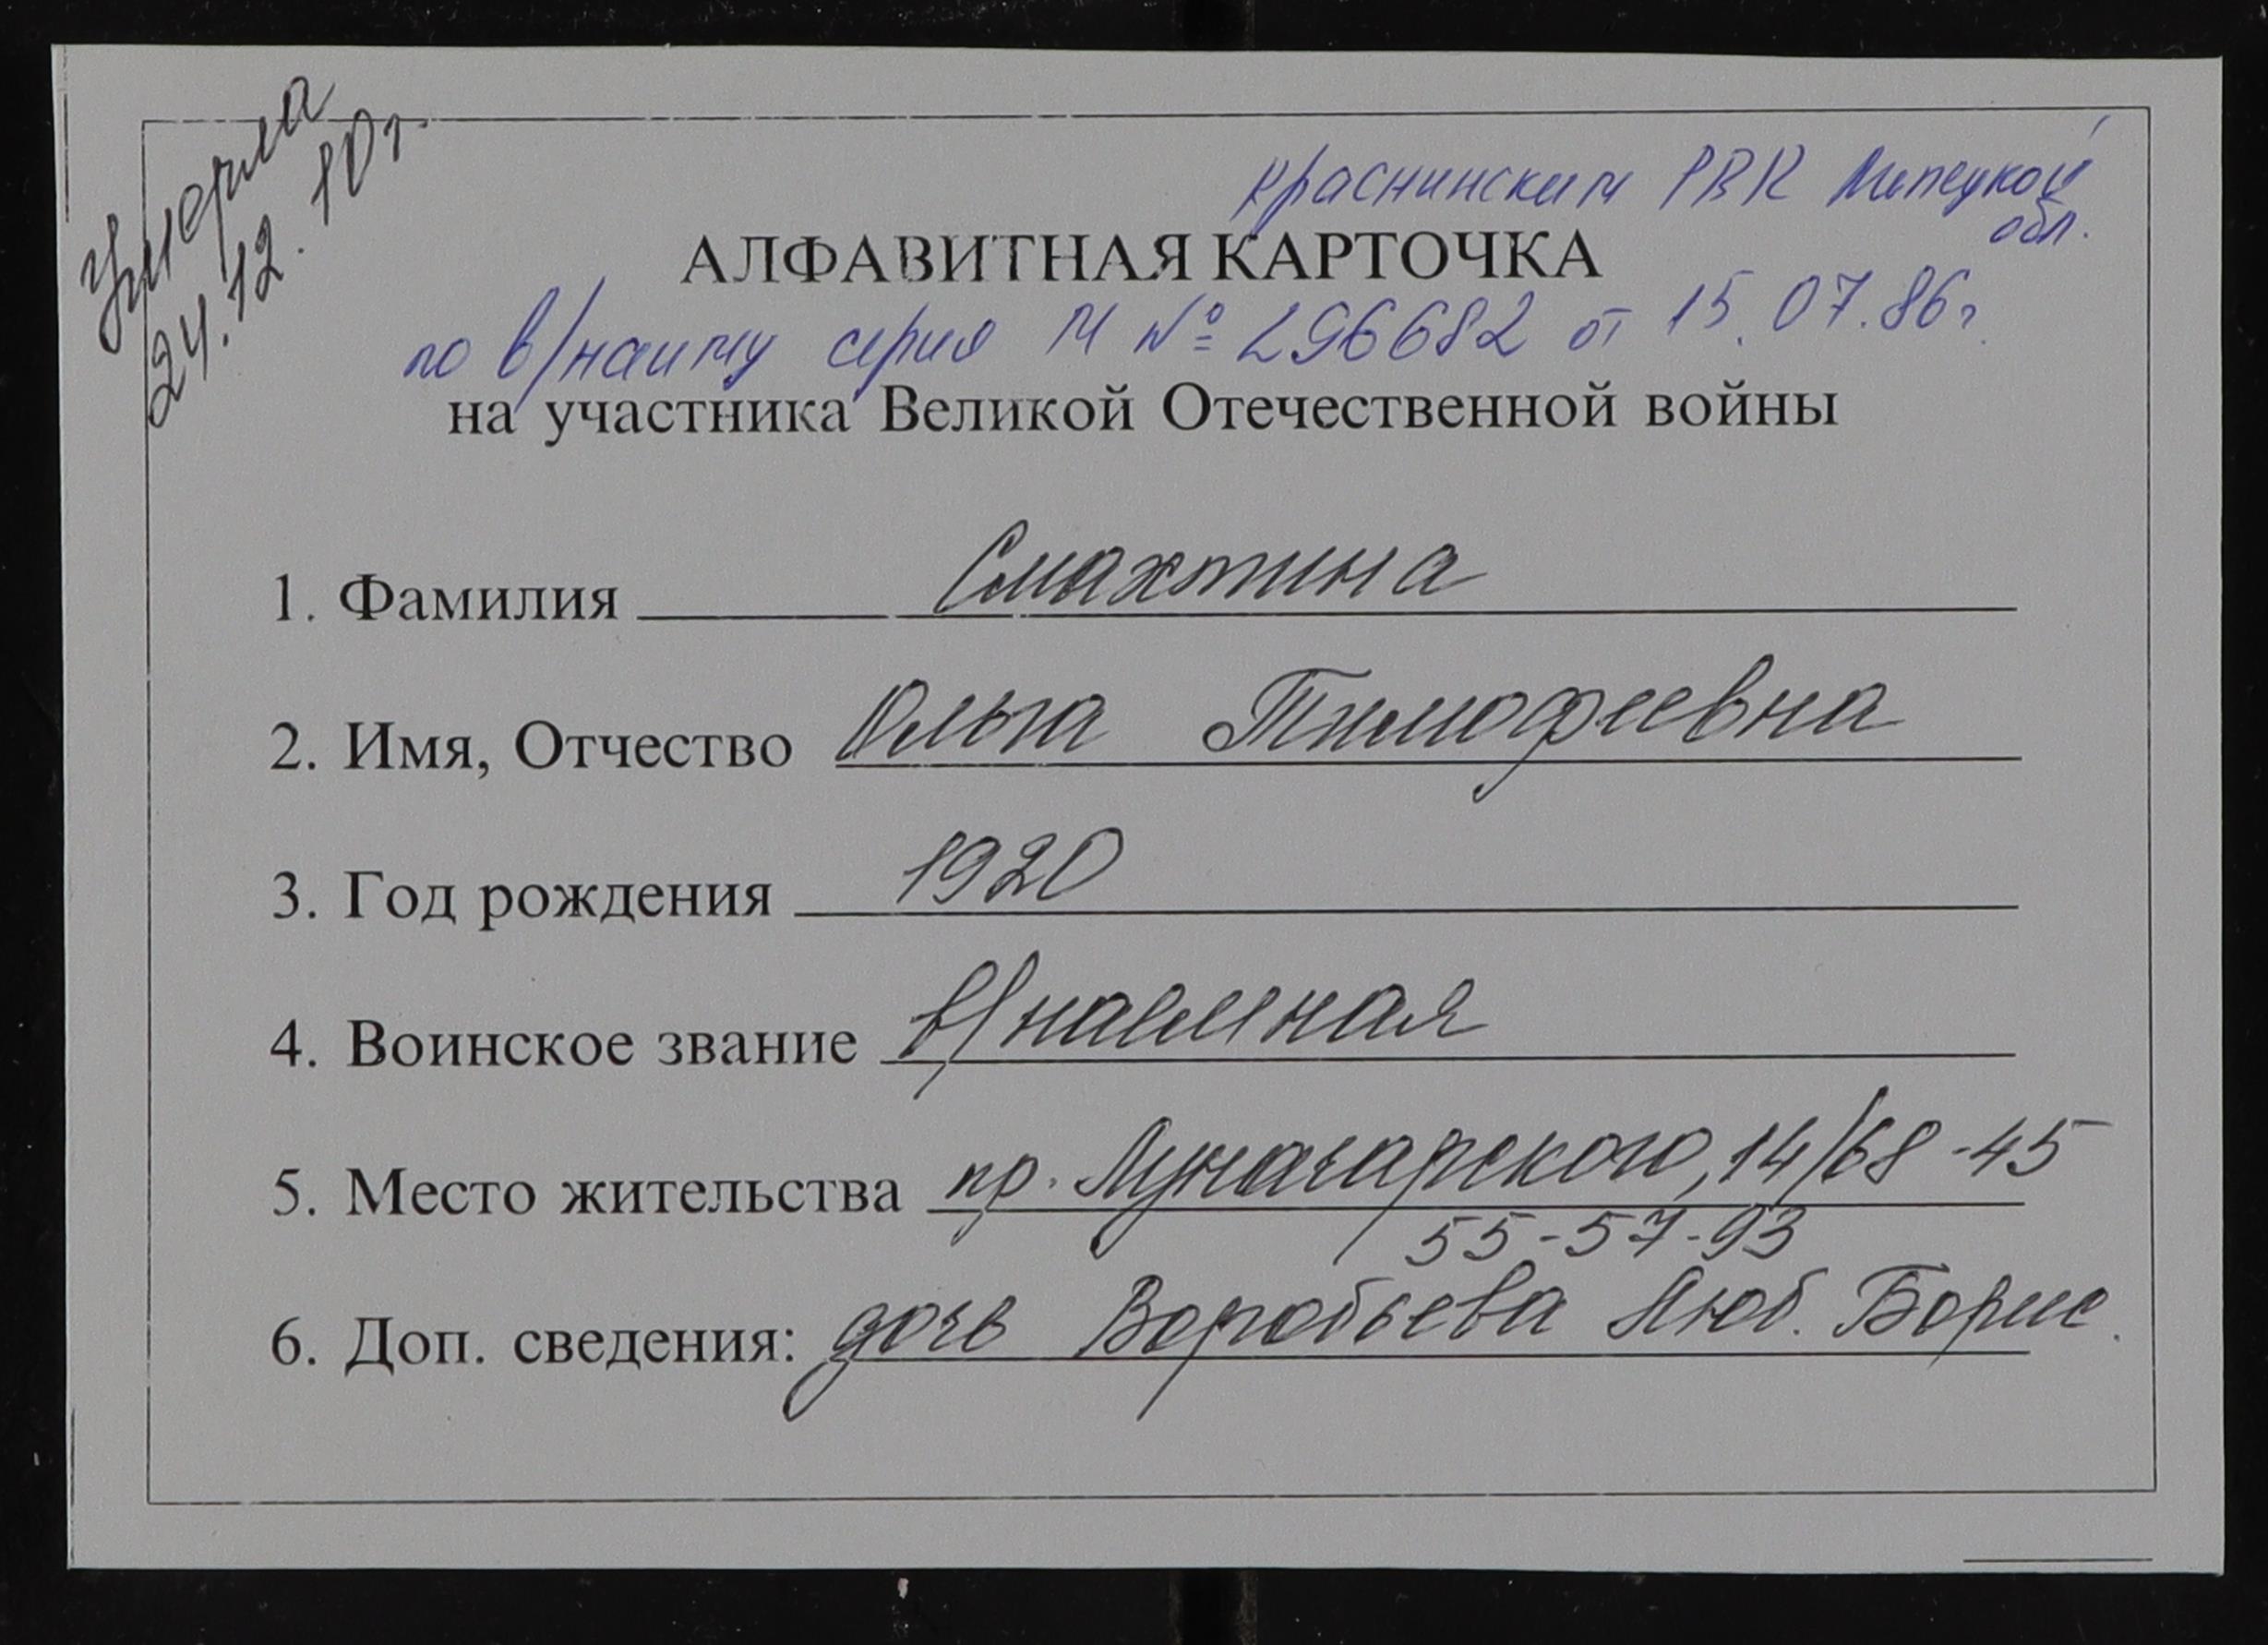 Умерла
24.12.10г.
Краснинским РВК Липецкой
обл.
АЛФАВИТНАЯ КАРТОЧКА
по в/найму серия М № 296682 от 15.07.86г
на участника Великой Отечественной войны
1. Фамилия Смахтина
2. Имя, Отчество Ольга Тимофеевна
3. Год рождения 1920
4. Воинское звание в/наемная
5. Место жительства пр. Луначарского, 14/68-45
55-57-93
6. Доп. сведения: дочь Воробьева Люб. Борис.